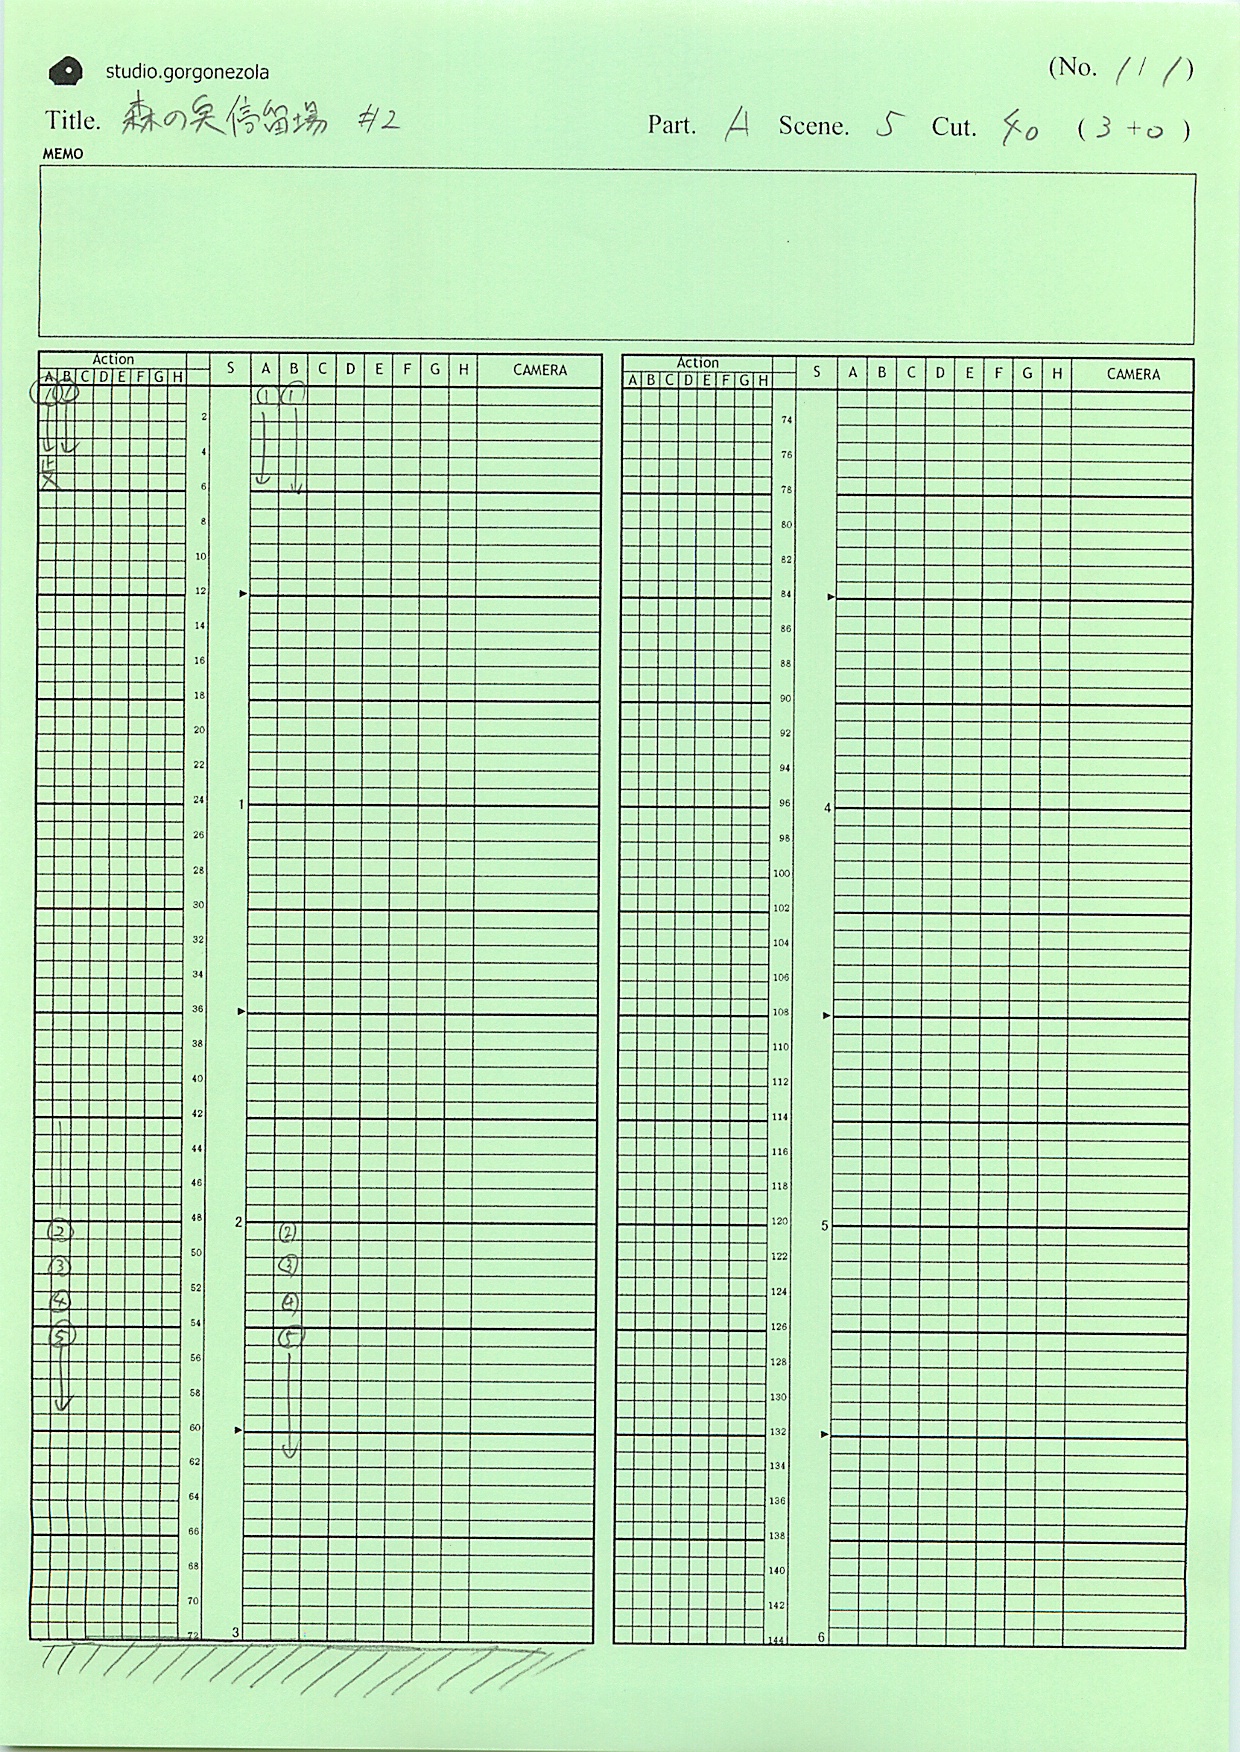 studio.gorgonezola
(No. 1 / 1)
Title. 森の奥停留場 #2 Part. A Scene. 5 Cut. 40 (3+0)
MEMO
Action S A B C D E F G H CAMERA
A B C D E F G H
① ① ① ①
2
4
止メ
6
8
10
12
14
16
18
20
22
24 1
26
28
30
32
34
36
38
40
42
44
46
48 2
② ②
50
③ ③
52
④ ④
54
⑤ ⑤
56
58
60
62
64
66
68
70
72 3
Action S A B C D E F G H CAMERA
A B C D E F G H
74
76
78
80
82
84
86
88
90
92
94
96 4
98
100
102
104
106
108
110
112
114
116
118
120 5
122
124
126
128
130
132
134
136
138
140
142
144 6